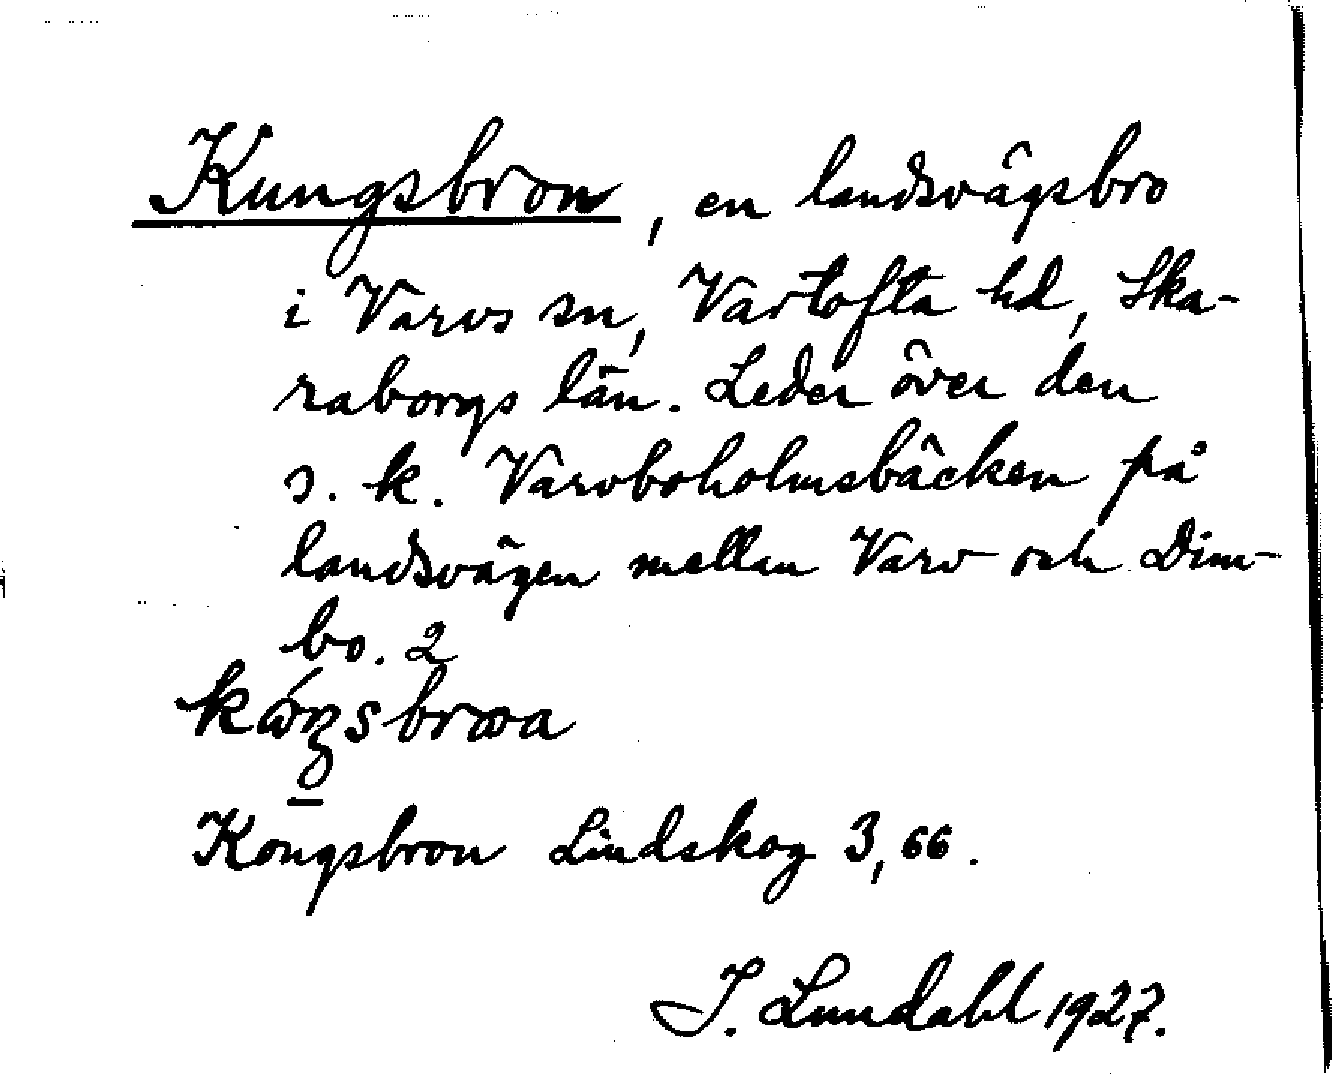 Kungsbron, en landsvägsbro
i Varvs sn, Vartofta hd, Ska-
raborgs län. Leder över den
s. k. Varvboholmsbäcken på
landsvägen mellan Varv och Dim-
bo. 2
Kongsbron Lindskog 3,66.
I. Lundahl 1927.